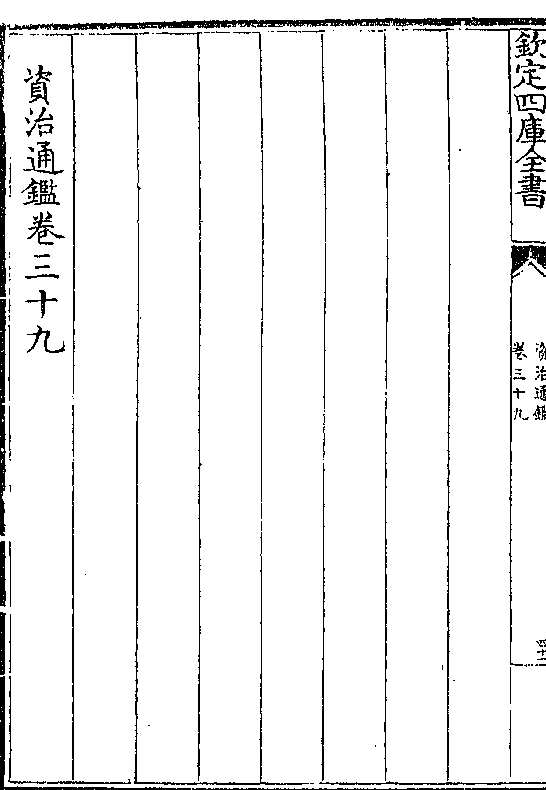 欽定四庫全書
資治通鑑
卷三十九
資治通鑑卷三十九